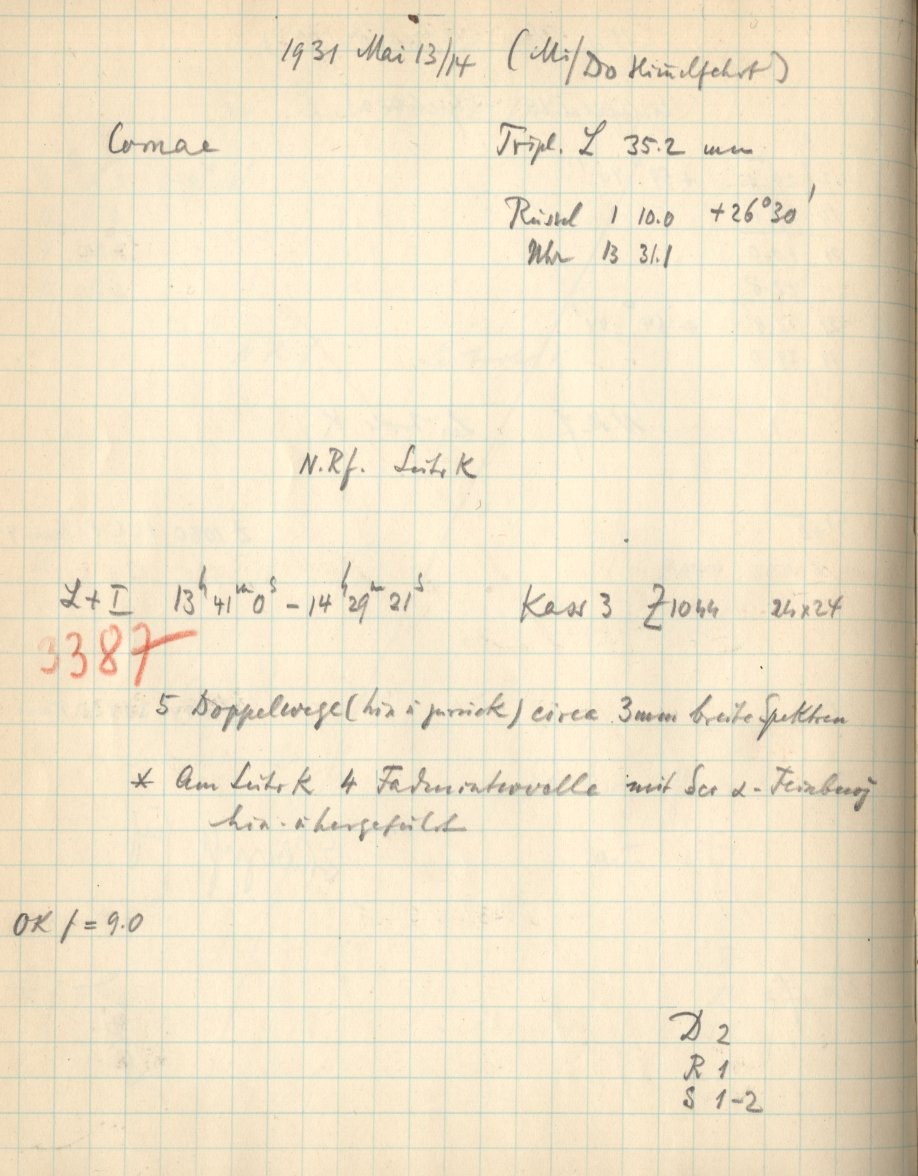 1931 Mai 13/14 (Mi/Do Himelfahrt)
Comae Tripl. L 35.2 mm
1 10.0 +26°30'
Uhr 13 31.1
N.Rf. Leitr K
L+I 13h 41m 0s - 14h 29m 21s Kass 3 Z1044 24x24
3387
5 Doppelwege (hin u zurück) circa 3mm breite Spektren
* Am Leitr K 4 Fadenintervalle mit der α-Feinbeweg
hin- übergeführt
OK f = 9.0
D 2
R 1
S 1-2